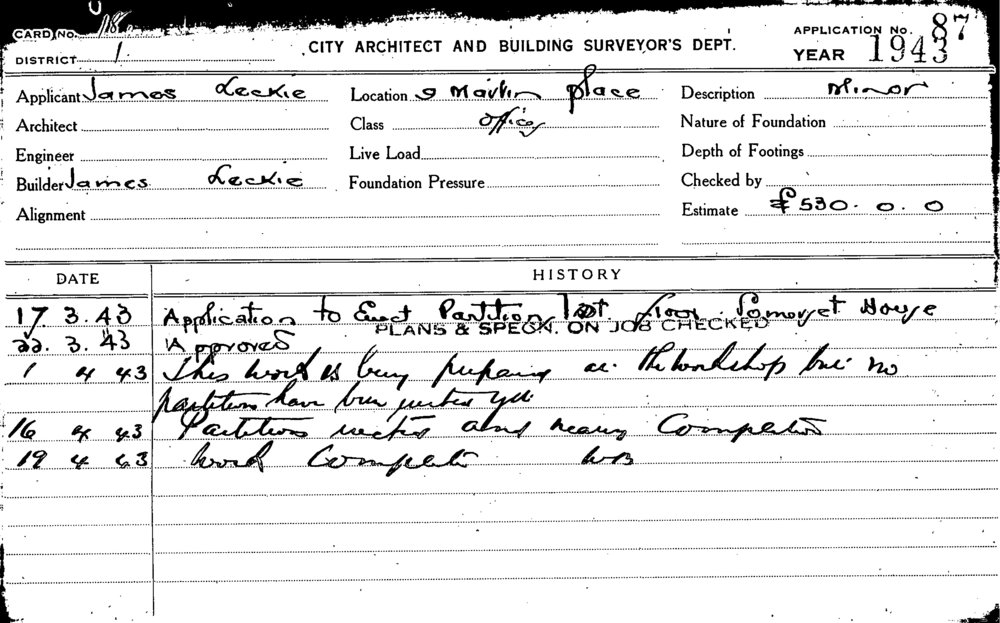 U
CARD No. 118
DISTRICT 1
CITY ARCHITECT AND BUILDING SURVEYOR'S DEPT.
APPLICATION No. 87
YEAR 1943
Applicant James Leckie Location 9 Martin place Description Minor
Architect Class Offices Nature of Foundation
Engineer Live Load Depth of Footings
Builder James Leckie Foundation Pressure Checked by
Alignment Estimate £530. 0. 0
DATE HISTORY
17. 3. 43 Application to Erect Partition 1st floor Somerset House
PLANS & SPECN. ON JOB CHECKED
22. 3. 43 Approved
1 4 43 This work is being prepared at the workshop but no
partitions have been erected yet
16 4 43 Partitions erected and nearly Completed
19 4 43 Work Completed WB